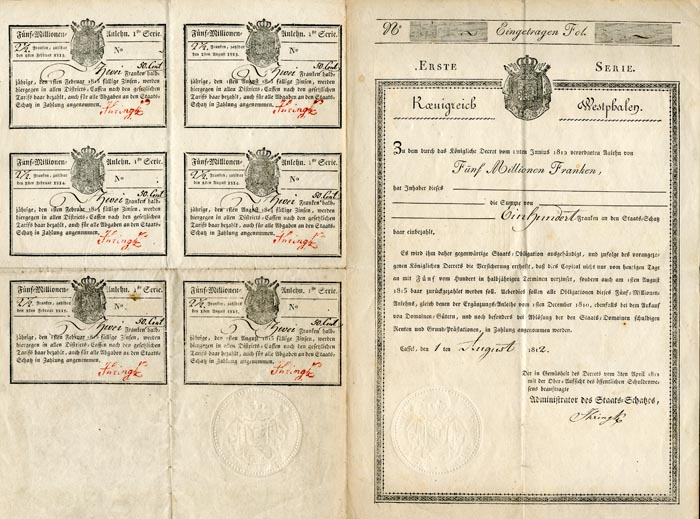 Fünf-Millionen- Anlehn. 1ste Serie.
2½ Franken, zahlbar
No
den 1sten Februar 1815.
Zwei 50. Cent
Franken halb-
jährige, den 1sten Februar 1815 fällige Zinsen, werden
hiergegen in allen Districts-Cassen nach den gesetzlichen
Tariffs baar bezahlt, auch für alle Abgaben an den Staats-
Schatz in Zahlung angenommen.
Fünf-Millionen- Anlehn. 1ste Serie.
2½ Franken, zahlbar
No
den 1sten August 1815.
Zwei 50. Cent
Franken halb-
jährige, den 1sten August 1815 fällige Zinsen, werden
hiergegen in allen Districts-Cassen nach den gesetzlichen
Tariffs baar bezahlt, auch für alle Abgaben an den Staats-
Schatz in Zahlung angenommen.
Fünf-Millionen- Anlehn. 1ste Serie.
2½ Franken, zahlbar
No
den 1sten Februar 1814.
Zwei 50. Cent
Franken halb-
jährige, den 1sten Februar 1814 fällige Zinsen, werden
hiergegen in allen Districts-Cassen nach den gesetzlichen
Tariffs baar bezahlt, auch für alle Abgaben an den Staats-
Schatz in Zahlung angenommen.
Fünf-Millionen- Anlehn. 1ste Serie.
2½ Franken, zahlbar
No
den 1sten August 1814.
Zwei 50. Cent
Franken halb-
jährige, den 1sten August 1814 fällige Zinsen, werden
hiergegen in allen Districts-Cassen nach den gesetzlichen
Tariffs baar bezahlt, auch für alle Abgaben an den Staats-
Schatz in Zahlung angenommen.
Fünf-Millionen- Anlehn. 1ste Serie.
2½ Franken, zahlbar
No
Zwei 50. Cent
Franken halb-
jährige, den 1sten Februar fällige Zinsen, werden
hiergegen in allen Districts-Cassen nach den gesetzlichen
Tariffs baar bezahlt, auch für alle Abgaben an den Staats-
Schatz in Zahlung angenommen.
Fünf-Millionen- Anlehn. 1ste Serie.
2½ Franken, zahlbar
No
Zwei 50. Cent
Franken halb-
jährige, den 1sten August fällige Zinsen, werden
hiergegen in allen Districts-Cassen nach den gesetzlichen
Tariffs baar bezahlt, auch für alle Abgaben an den Staats-
Schatz in Zahlung angenommen.
No Eingetragen Fol.
ERSTE SERIE.
Kœnigreich Westphalen.
Zu dem durch das Königliche Decret vom 12ten Junius 1812 verordneten Anlehn von
Fünf Millionen Franken,
hat Inhaber dieses
die Summe von
Einhundert Franken an den Staats-Schatz
baar einbezahlt.
Es wird ihm daher gegenwärtige Staats-Obligation ausgehändigt, und zufolge des vorangezo-
genen Königlichen Decrets die Versicherung ertheilt, dass dies Capital nicht nur vom heutigen Tage
an mit Fünf vom Hundert in halbjährigen Terminen verzinset, sondern auch am 1sten August
1815 baar zurückgezahlt werden soll. Ueberdies sollen alle Obligationen dieses Fünf-Millionen-
Anlehns, gleich denen der Ergänzungs-Anleihe vom 1sten December 1810, ebenfalls bei dem Ankauf
von Domainen-Gütern, und noch besonders bei Ablösung der den Staats-Domainen schuldigen
Renten und Grund-Prästationen, in Zahlung angenommen werden.
Cassel, den 1 ten August 1812.
Der in Gemäßheit des Decrets vom 3ten April 1812
mit der Ober-Aufsicht des öffentlichen Schuldenwe-
sens beauftragte
Administrator des Staats-Schatzes,